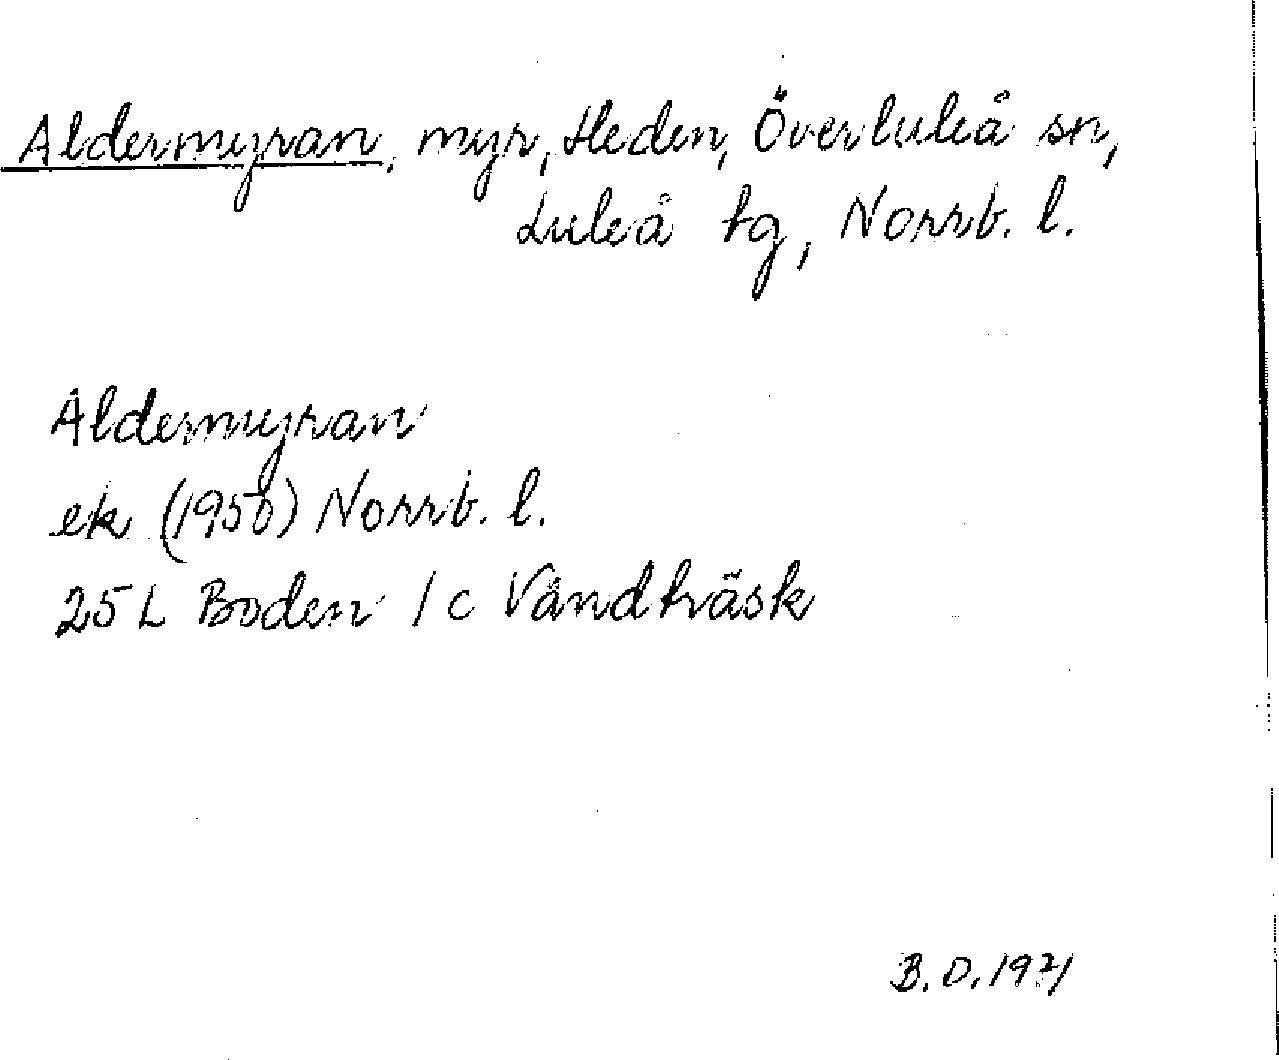 Aldermyran, myr, Heden, Överluleå sn,
Luleå tg, Norrb. l.
Aldermyran
ek (1950) Norrb. l.
25 L Boden 1c Vändträsk
B.D. 1971